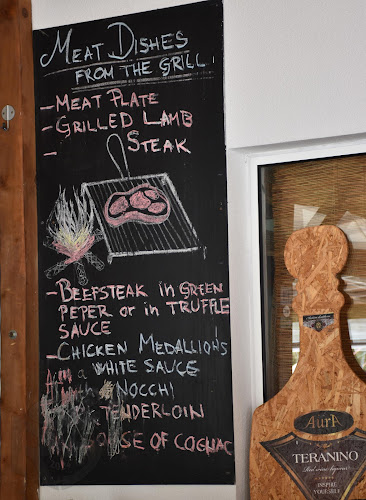 MEAT DISHES
FROM THE GRILL
- MEAT PLATE
- GRILLED LAMB
- STEAK
- BEEFSTEAK in GREEN
PEPER or in TRUFFLE
SAUCE
- CHICKEN MEDALLIONS
WHITE SAUCE
NOCCHI
TENDERLOIN
OF COGNAC
AurA
TERANINO
Red wine liqueur
INSPIRE
YOURSELF